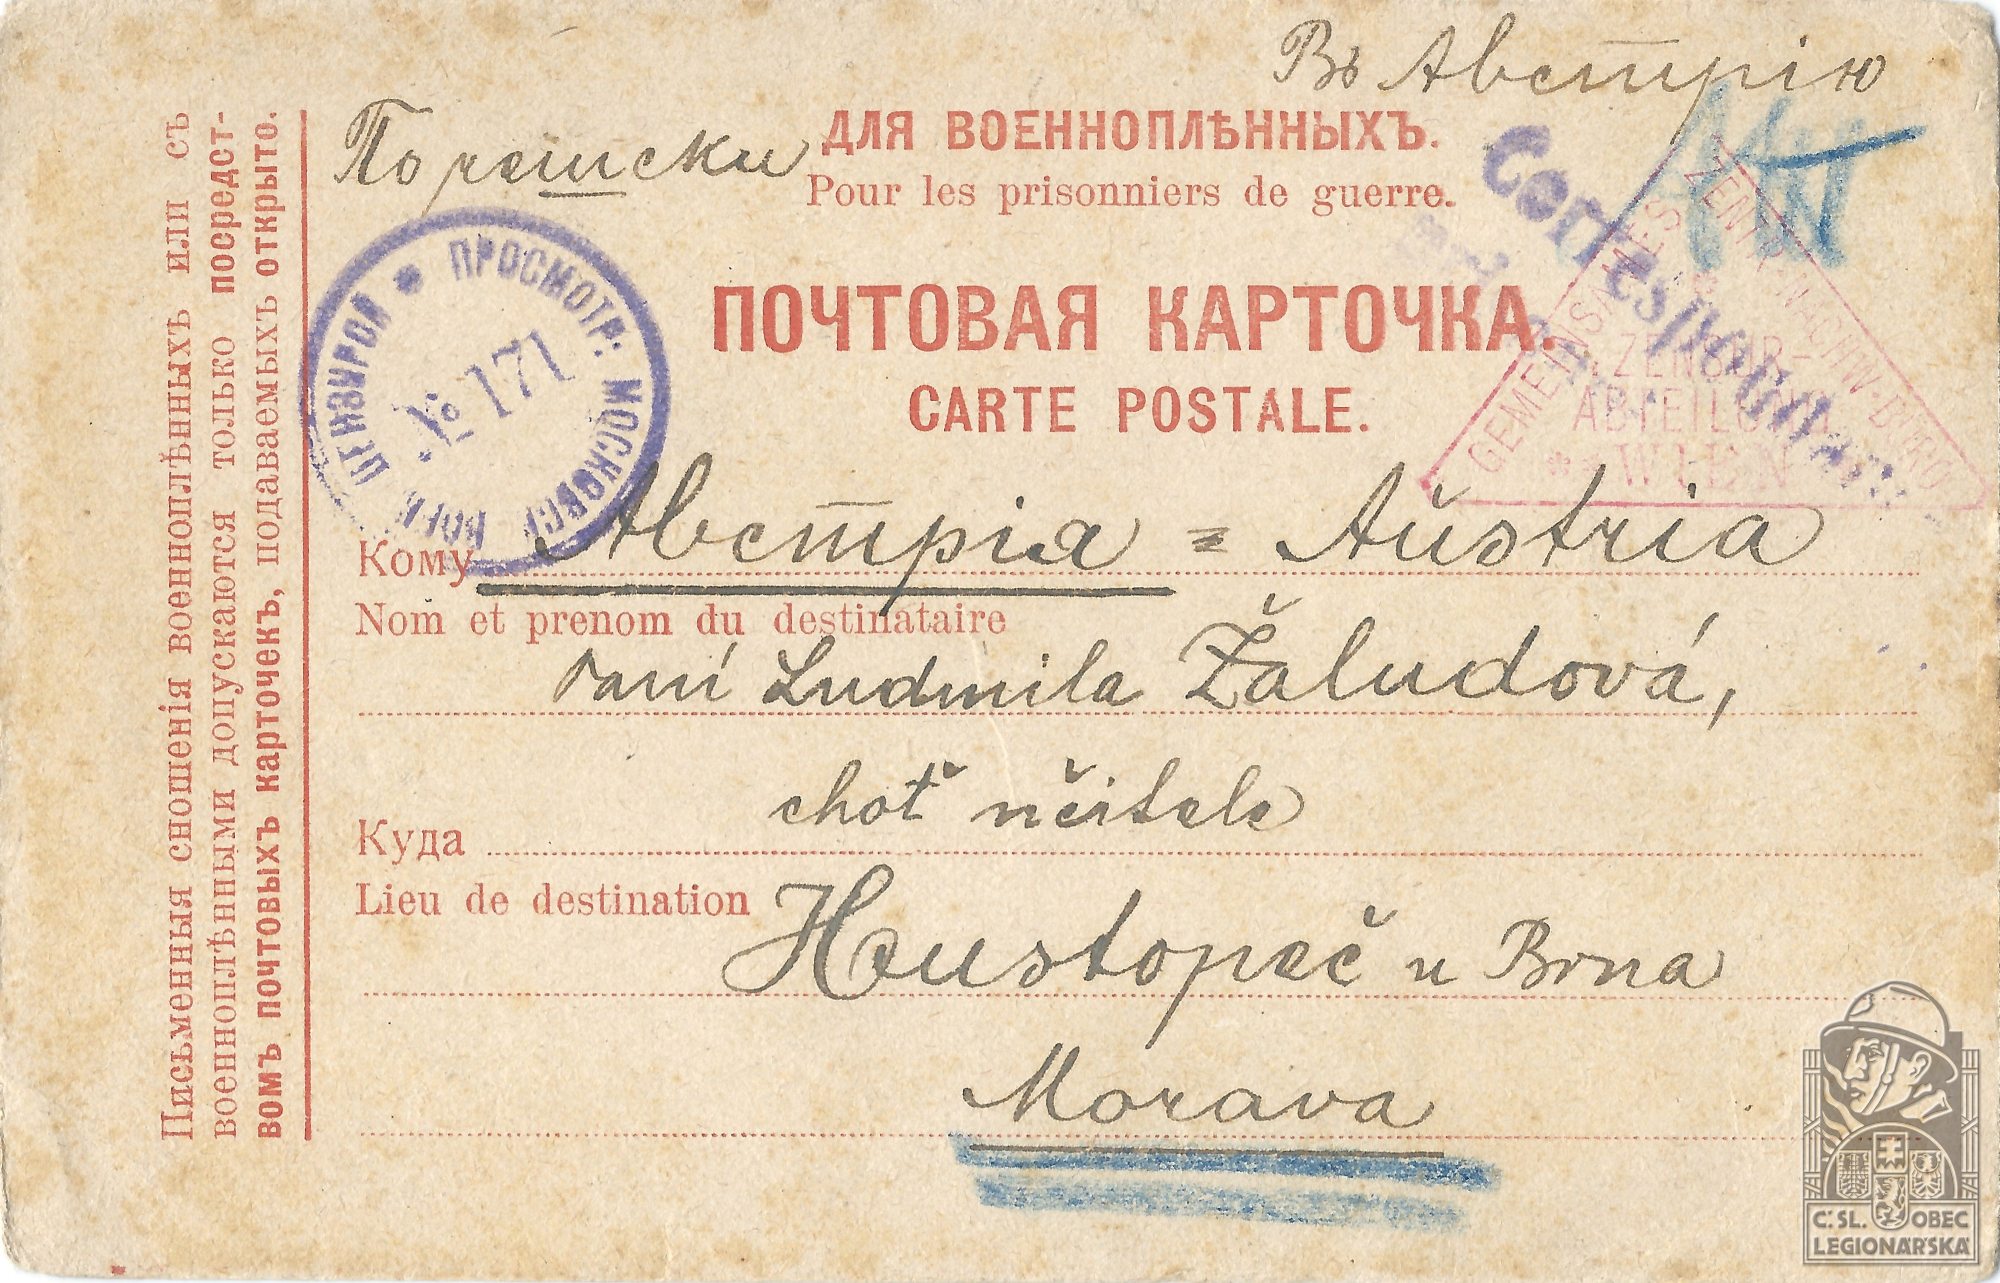 Въ Австрію
По чешски
ДЛЯ ВОЕННОПЛѢННЫХЪ.
Pour les prisonniers de guerre.
ПОЧТОВАЯ КАРТОЧКА.
CARTE POSTALE.
Кому Австрія = Aŭstria
Nom et prenom du destinataire
Paní Ludmila Žaludová,
choť učitele
Куда
Lieu de destination
Hustopeč u Brna
Morava
Письменныя сношенія военноплѣнныхъ или съ
военноплѣнными допускаются только посредст-
вомъ почтовыхъ карточекъ, подаваемыхъ открыто.
ПРОСМОТР: МОСКОВСК ВОЕН ЦЕНЗУРОЙ
№ 171
GEMEINSAMES ZENTR-NACHW-BURO
ZENSUR-
ABTEILUNG
WIEN
Č.SL. OBEC
LEGIONÁŘSKÁ